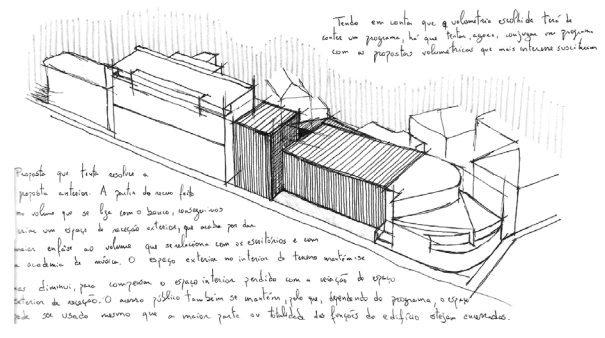 Tendo em conta que a volumetria escolhida terá de
conter um programa, há que tentar, agora, conjugar um programa
com as propostas volumétricas que mais interesse suscitaram
Proposta que tenta resolver a
proposta anterior. A partir do recuo feito
no volume que se liga com o banco, consegui-mos
criar um espaço de receção exterior, que acaba por dar
maior enfâse ao volume que se relaciona com os escritórios e com
a academia de música. O espaço exterior no interior do terreno mantém-se
mas diminui, para compensar o espaço interior perdido com a criação do espaço
exterior de receção. O acesso público também se mantém, pelo que, dependendo do programa, o espaço
pode ser usado mesmo que a maior parte ou totalidade das funções do edifício estejam encerradas.